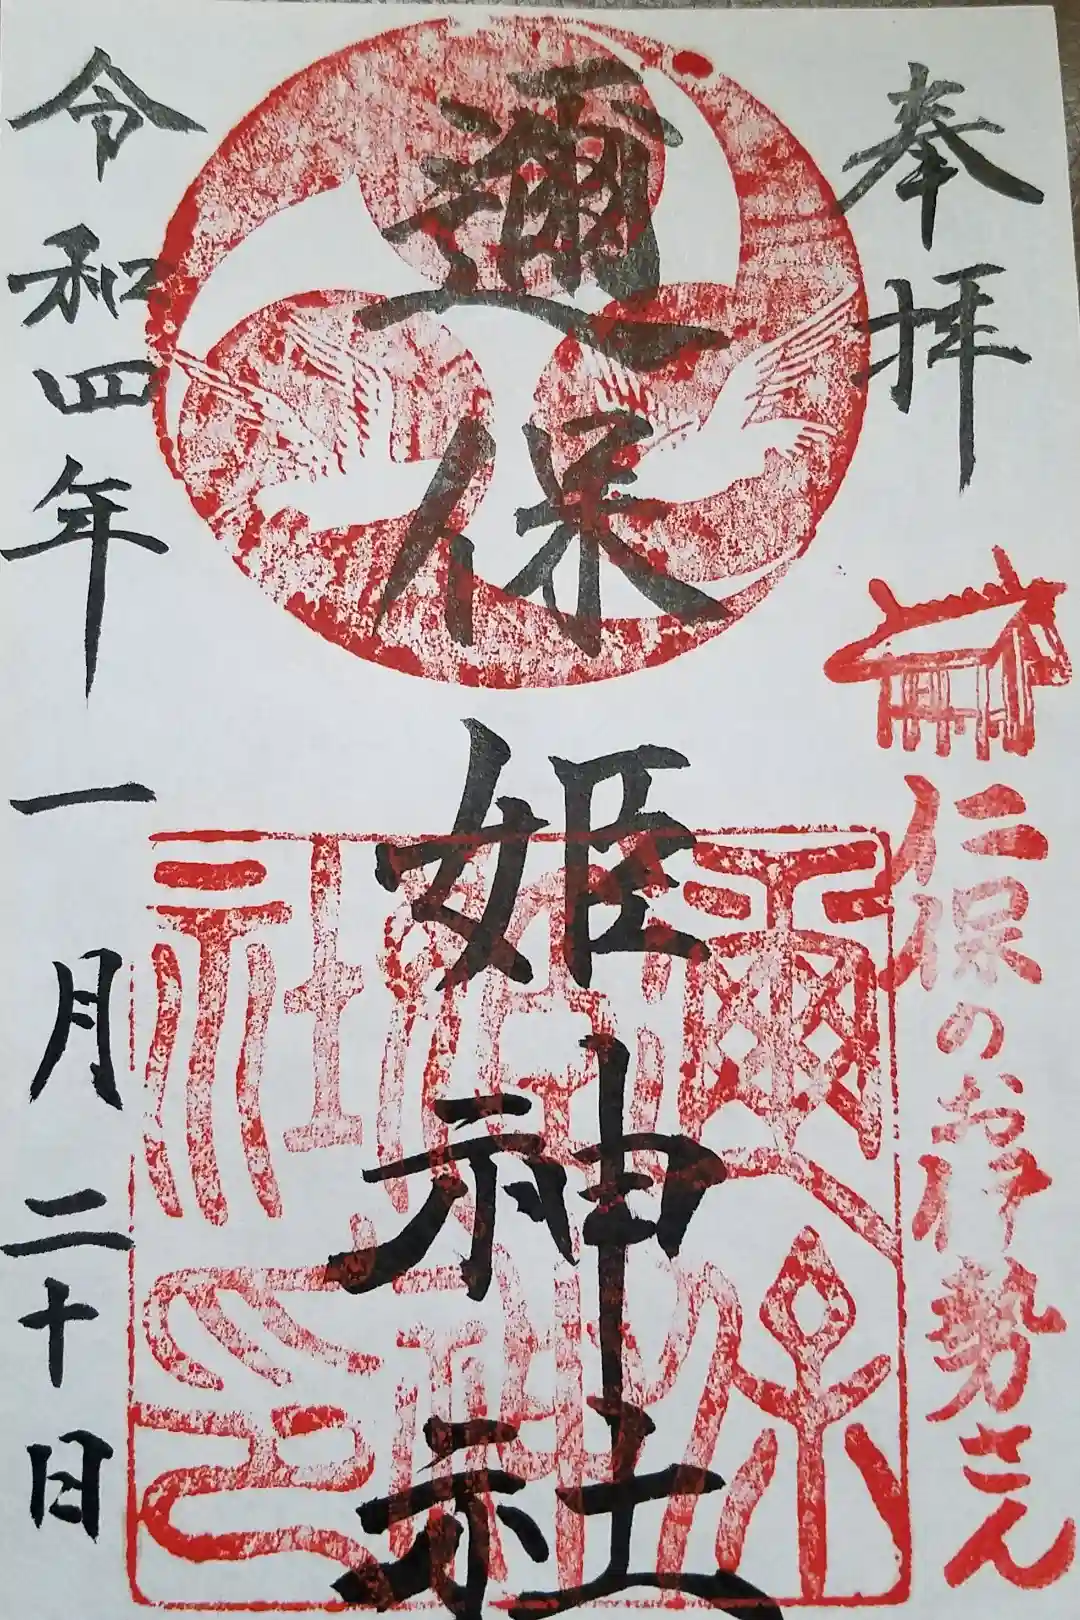 奉拝
仁保のお伊勢さん
邇保姫神社
邇保姫神社印
令和四年一月二十日